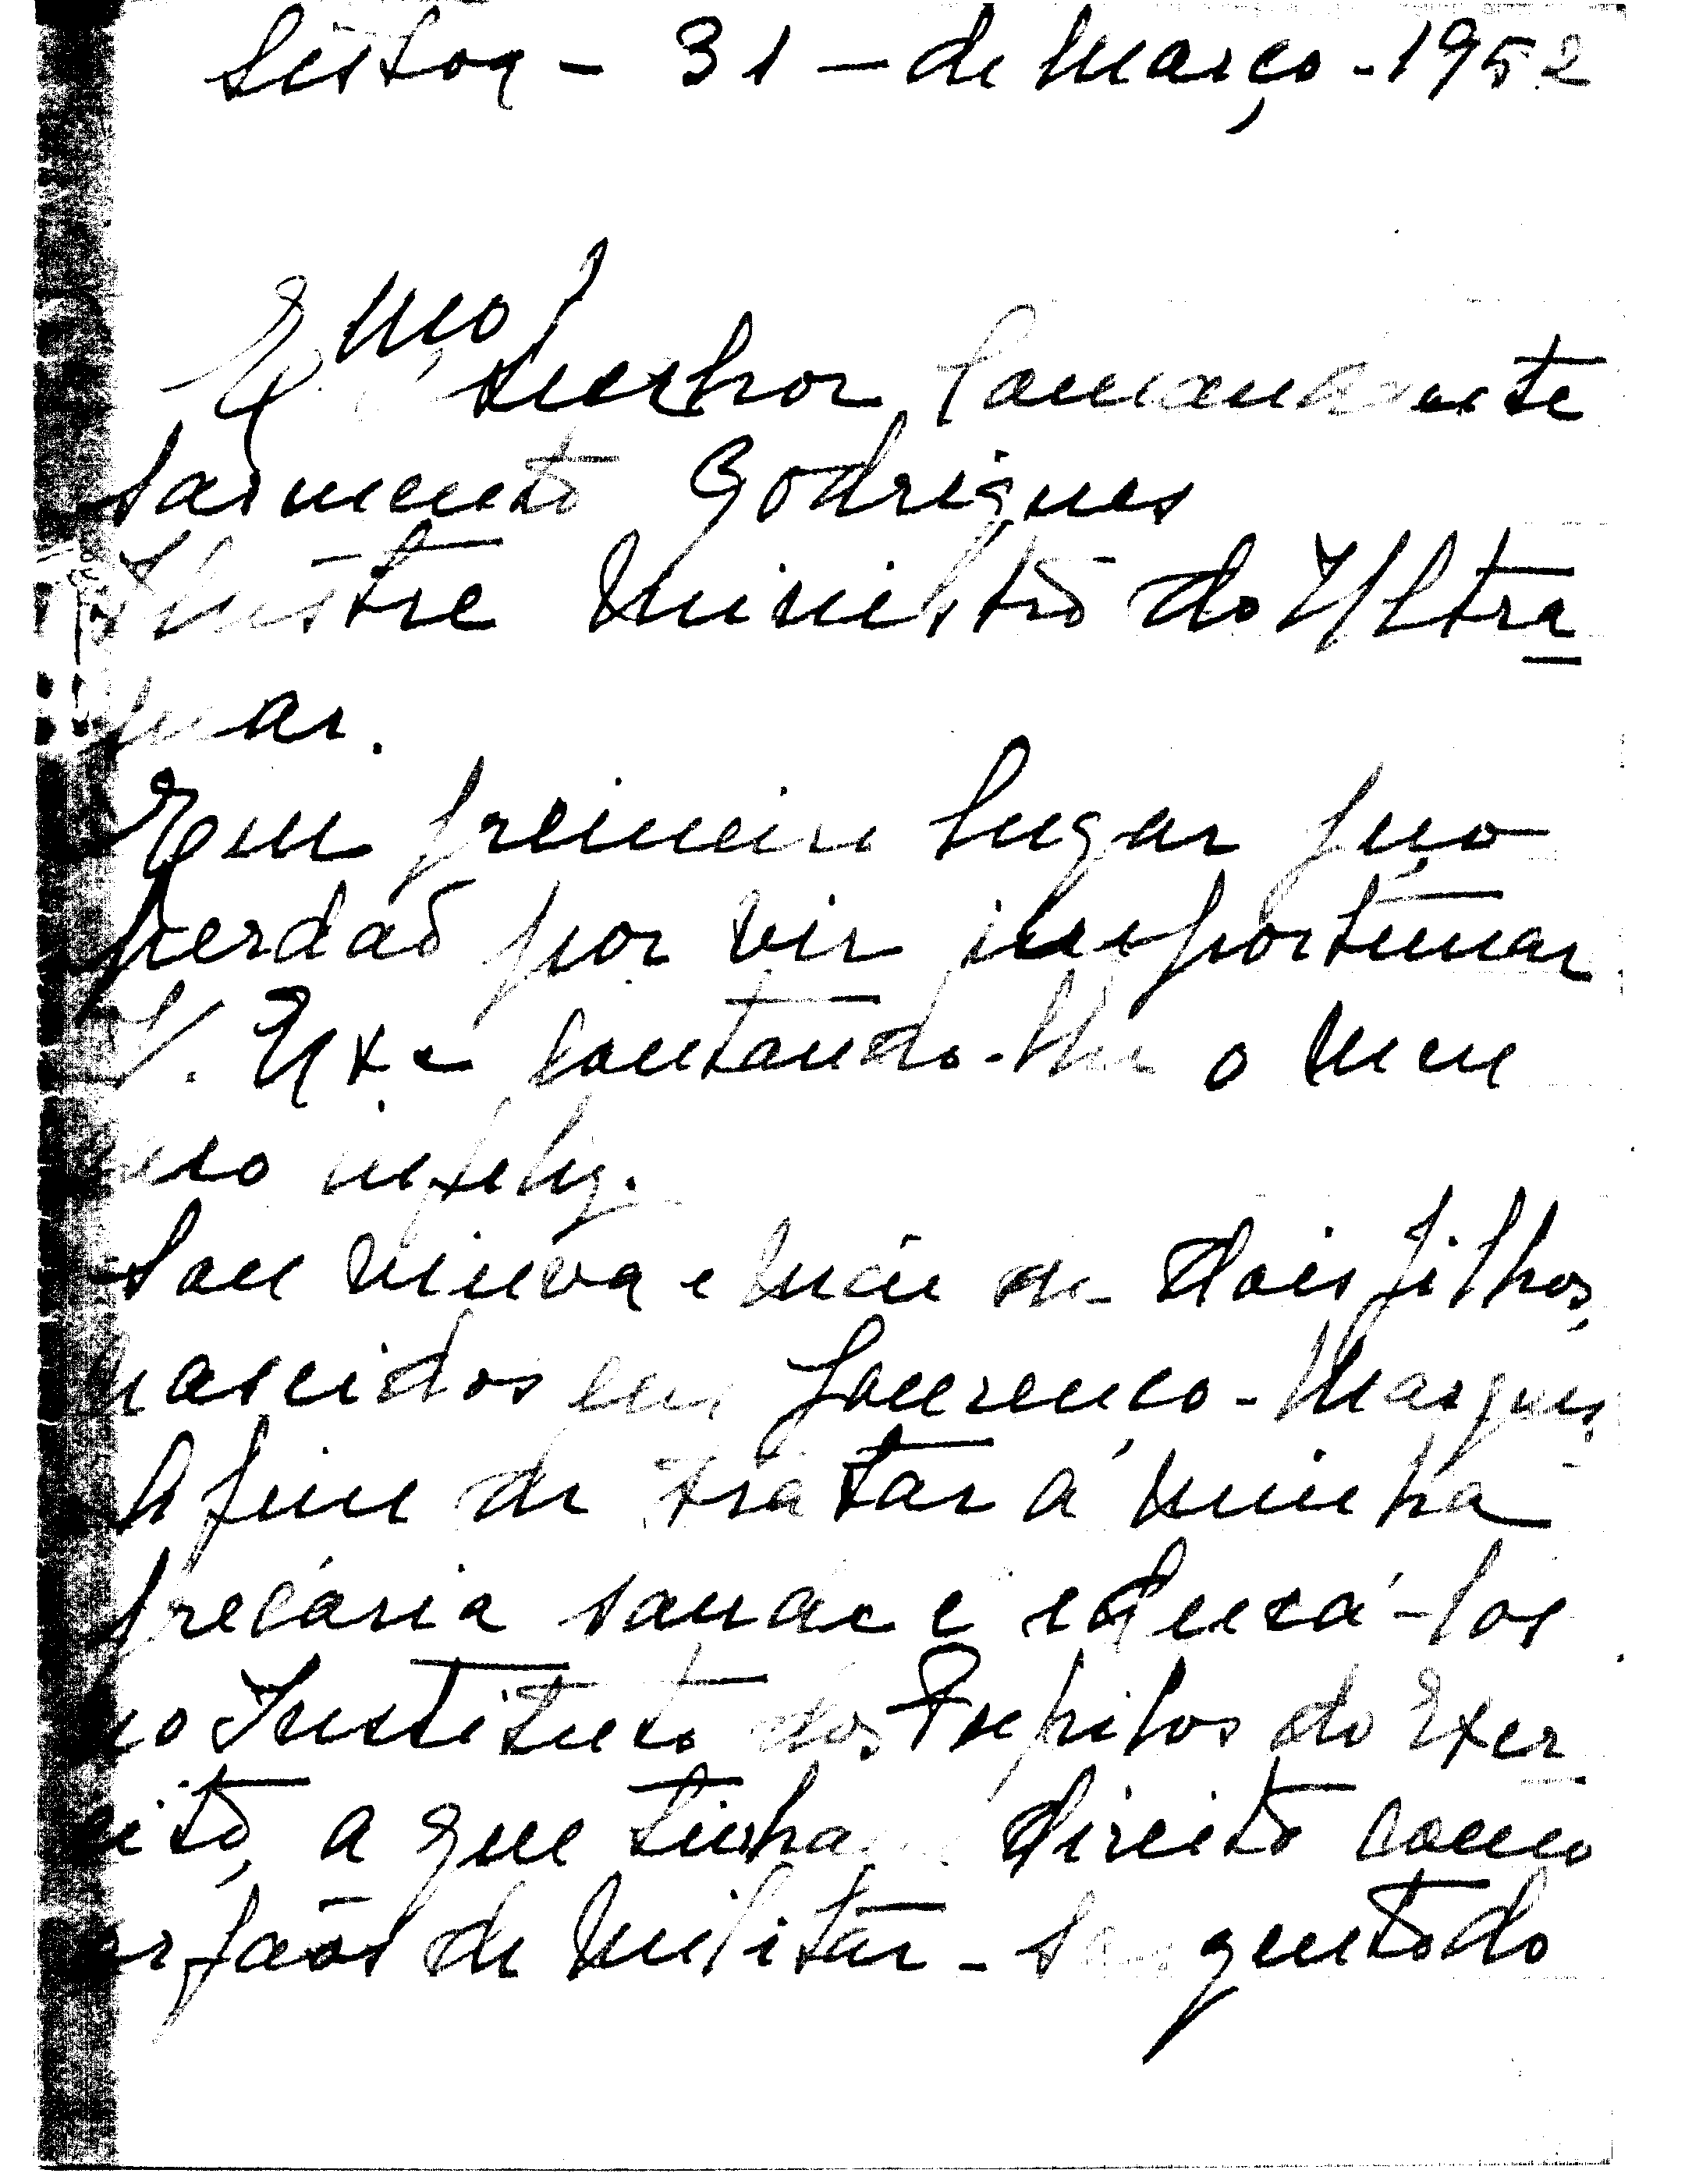 Lisboa - 31 - de Março - 1952
Exmo
Senhor Comandante
Sarmento Rodrigues
Ilustre Ministro do Ultra
mar.
Em primeiro lugar peço
perdão por vir importunar
V. Exa contando-lhe o meu
caso infeliz.
Sou viúva e mãe de dois filhos,
nascidos em Lourenço-Marques,
A fim de tratar a minha
precária saúde e educá-los
no Instituto dos Pupilos do Exer
cito, a que tinham direito como
orfãos de militar - Sargento do